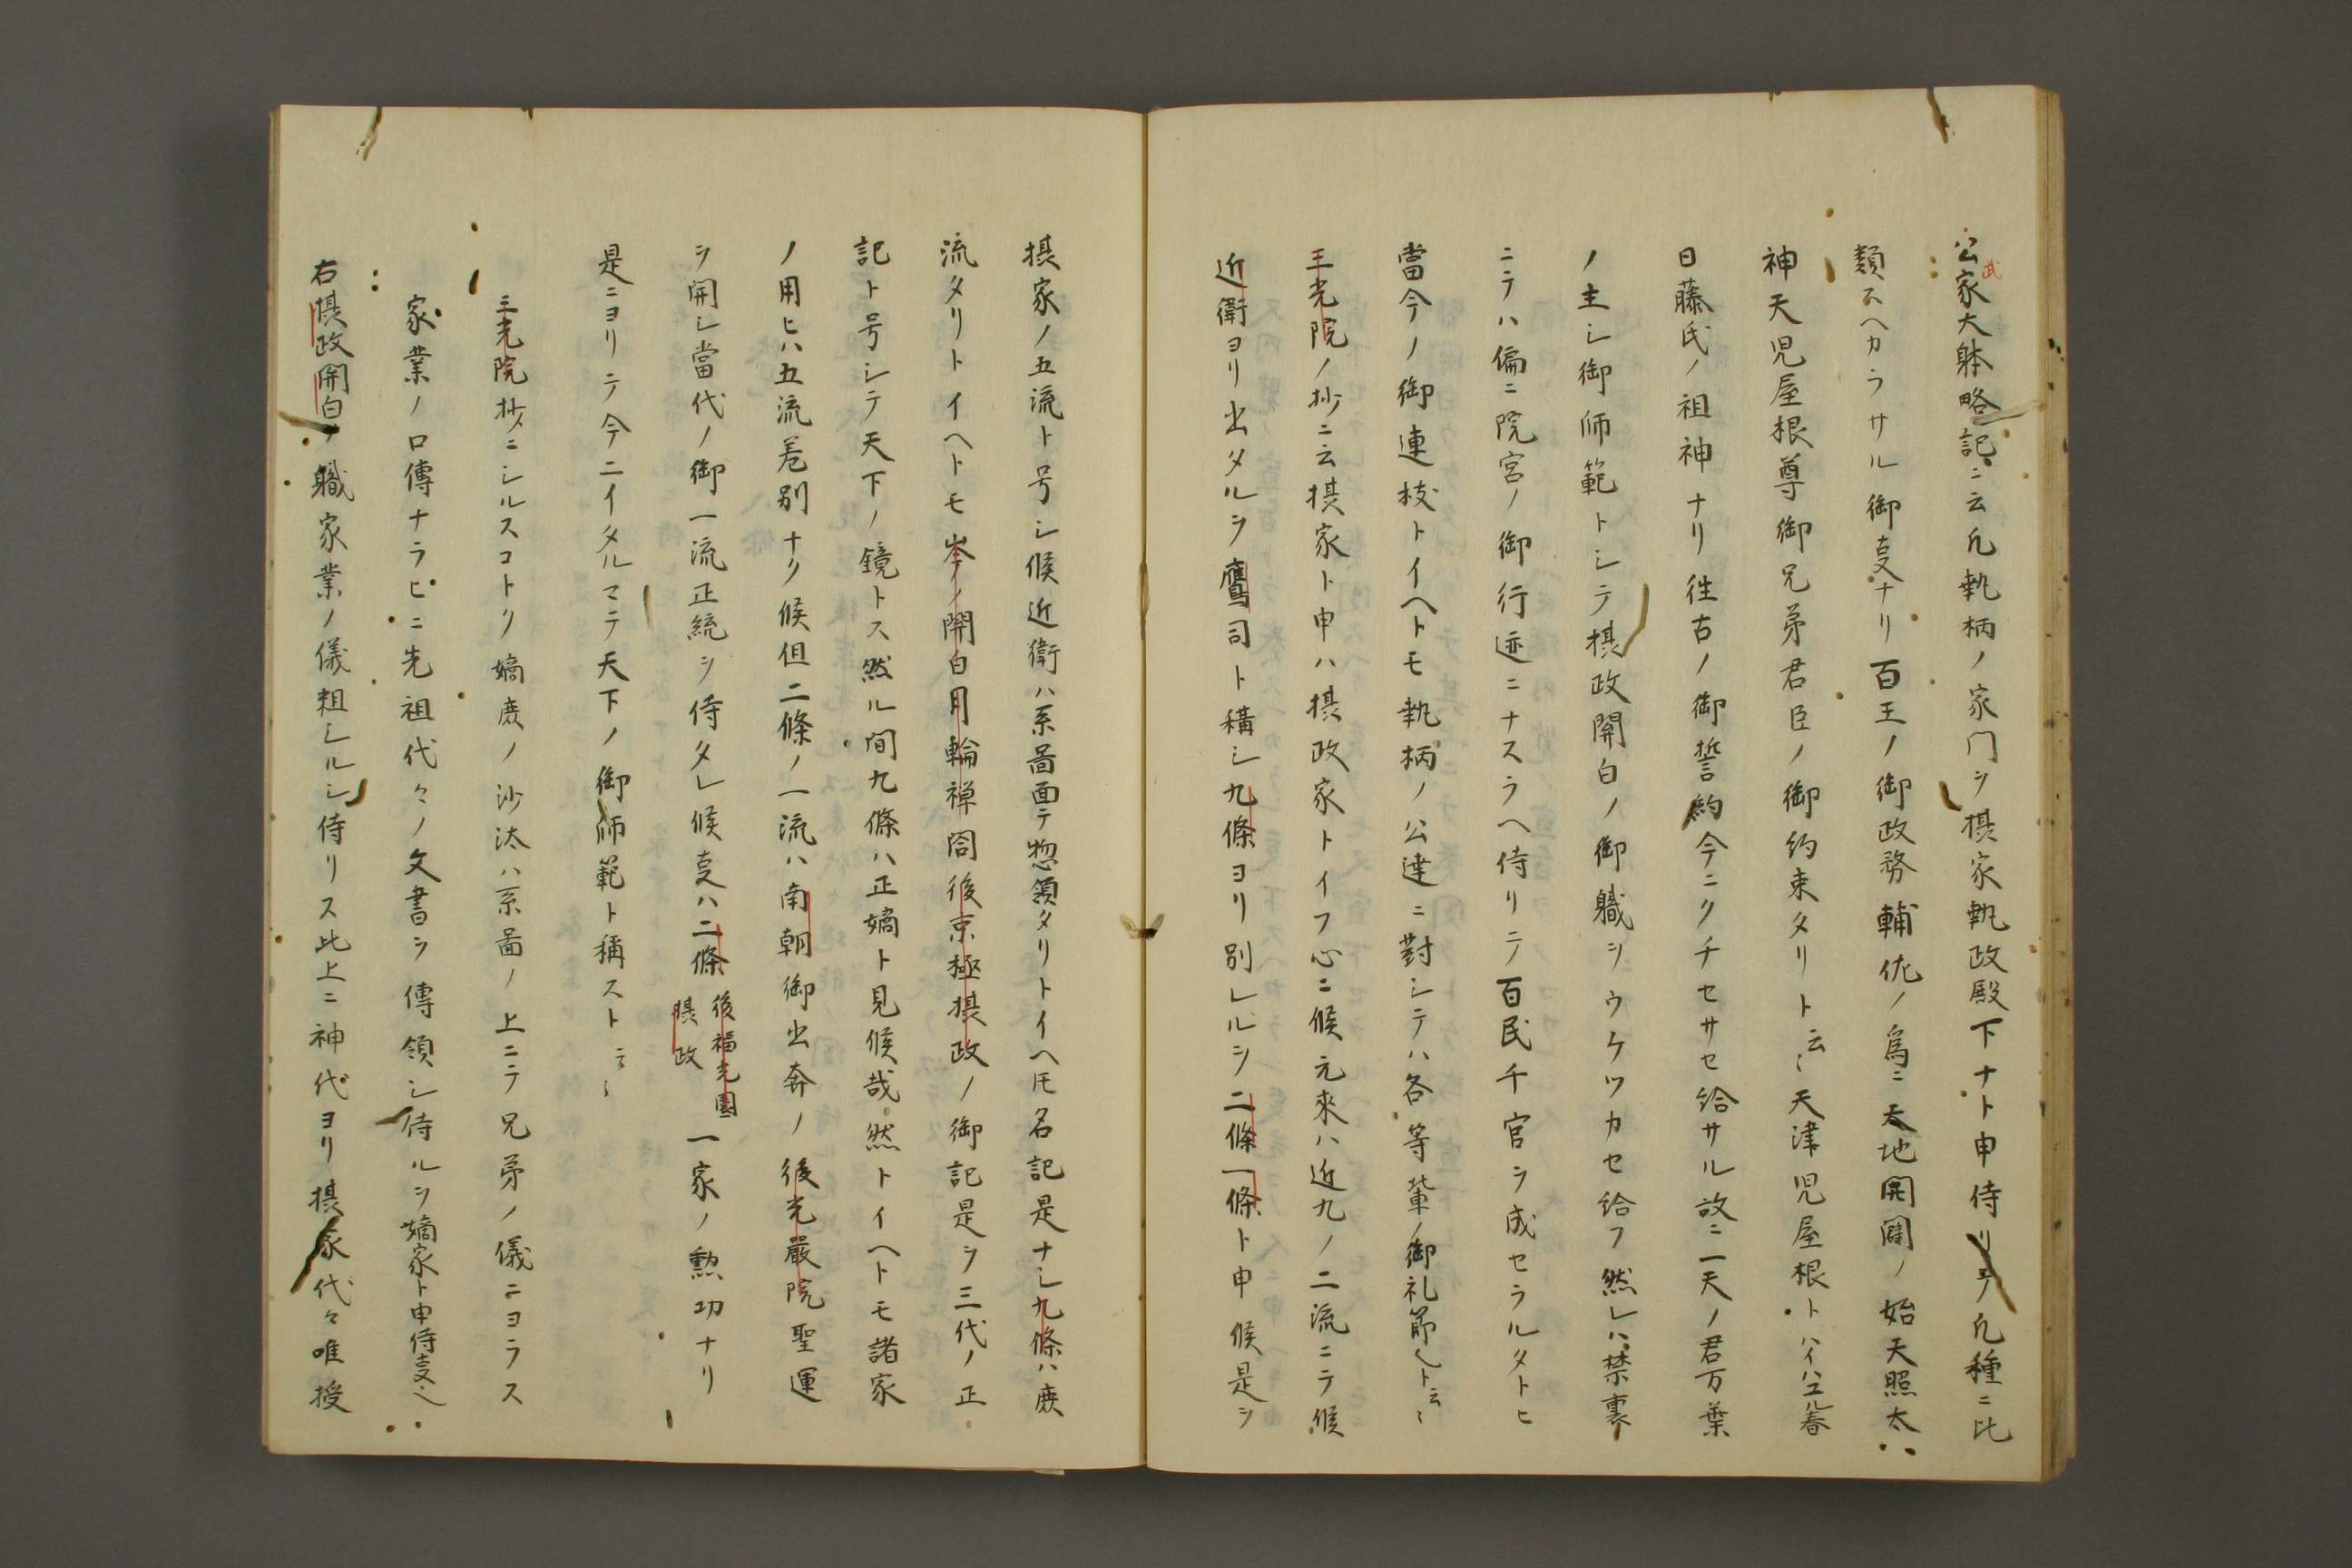 公家大躰略記ニ云凡執柄ノ家門ヲ摂家執政殿下ナト申侍リテ凡種ニ比
武
類スヘカラサル御叓ナリ百王ノ御政務輔佐ノ為ニ天地開闢ノ始天照太
神天児屋根尊御兄弟君臣ノ御約束タリト云〻天津児屋根トハイハユル春
日藤氏ノ祖神ナリ往古ノ御誓約今ニクチセサセ給サル故ニ一天ノ君万葉
ノ主シ御師範トシテ摂政関白ノ御職ヲウケツカセ給フ然レハ禁裏
ニテハ偏ニ院宮ノ御行迹ニナスラヘ侍リテ百民千官ヲ成セラルタトヒ
當今ノ御連枝トイヘトモ執柄ノ公達ニ對シテハ各等輩ノ御礼節ト云〻
三光院ノ抄ニ云摂家ト申ハ摂政家トイフ心ニ候元来ハ近九ノ二流ニテ候
近衛ヨリ出タルヲ鷹司ト稱シ九條ヨリ別レルヲ二條一條ト申候是ヲ
摂家ノ五流ト号シ候近衛ハ系畐面テ惣領タリトイヘ𪜈名記是ナシ九條ハ庶
流タリトイヘトモ峯ノ関白月輪禅閤後京極摂政ノ御記是ヲ三代ノ正
記ト号シテ天下ノ鏡トス然ル間九條ハ正嫡ト見候哉然トイヘトモ諸家
ノ用ヒハ五流差別ナク候但二條ノ一流ハ南朝御出奔ノ後光嚴院聖運
ヲ開シ當代ノ御一流正統ヲ侍タレ候叓ハ二條後福光園摂政一家ノ勲功ナリ
是ニヨリテ今ニイタルマテ天下ノ御師範ト稱スト云〻
三光院抄ニシルスコトク嫡庶ノ沙汰ハ系畐ノ上ニテ兄弟ノ儀ニヨラス
家業ノ口傳ナラヒニ先祖代々ノ文書ヲ傳領シ侍ルヲ嫡家ト申侍叓也
右摂政関白ノ職家業ノ儀粗シルシ侍リス此上ニ神代ヨリ摂家代々唯授